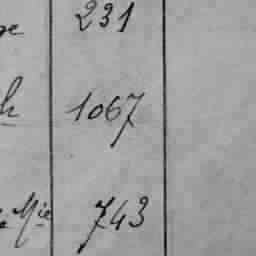 231
1067
Mie 743